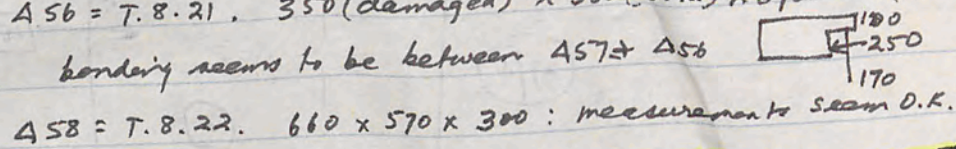 Δ56 = T.8.21. 350 (damaged) x
bonding seems to be between Δ57 + Δ56
180
250
170
Δ58 = T.8.22. 660 x 570 x 300 : measurements seem O.K.